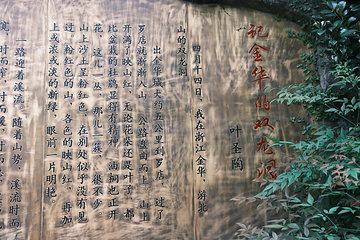 记金华的双龙洞
叶圣陶
四月十四日，我在浙江金华，游北
山的双龙洞。
出金华城大约五公里到罗店，过了
罗店就渐渐入山。公路盘曲而上。山上
开满了映山红，无论花朵还是叶子，都
比盆栽的杜鹃显得有精神。油桐也正开
花，这儿一丛，那儿一簇，很不少。
山上沙土呈粉红色，在别处似乎没有见
过。粉红色的山，各色的映山红，再加
上或浓或淡的新绿，眼前一片明艳。
一路迎着溪流。随着山势，溪流时而
宽，时而窄，时而缓，